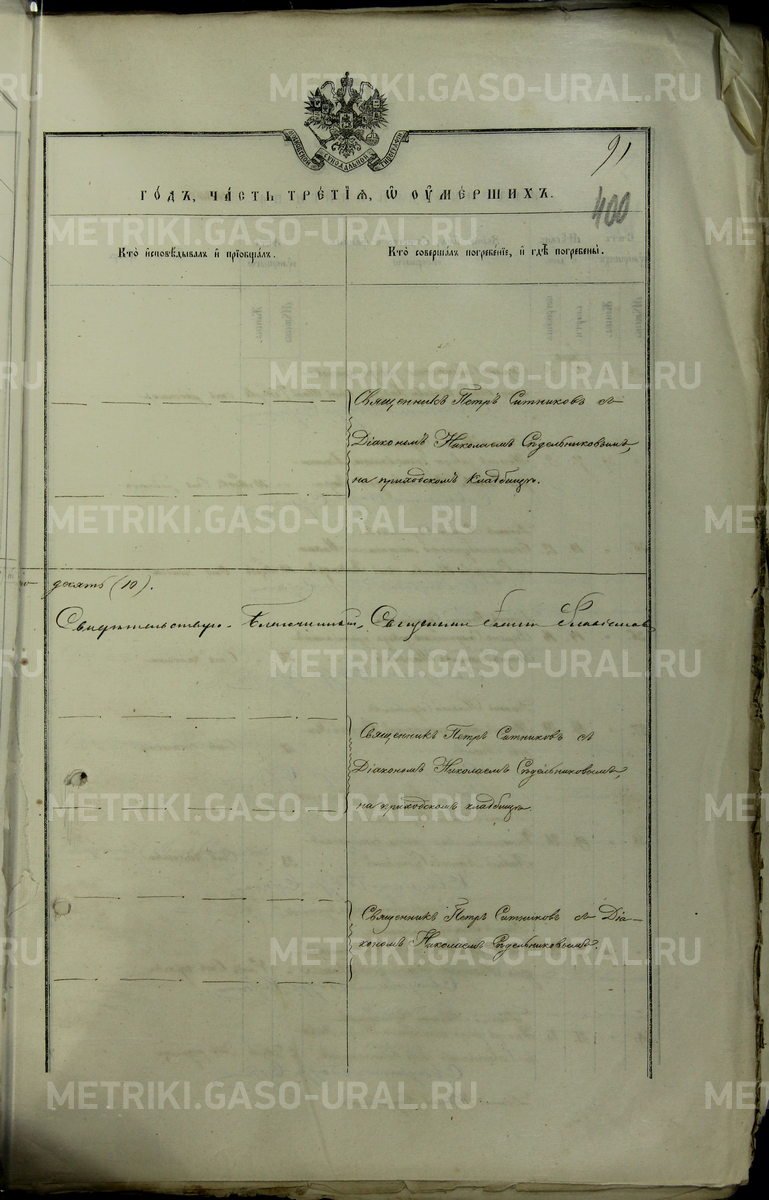 METRIKI.GASO-URAL.RU
91
400
ГО́ДЪ, ЧА́СТЬ ТРЕ́ТІѦ, Ѡ ОУ҆МЕ́РШИХЪ.
Кто̀ и҆сповѣ́дывалъ и҆ прїѡбща́лъ.
Кто̀ соверша́лъ погребе́нїе, и҆ гдѣ̀ погребены̀.
Священникъ Петръ Ситниковъ съ
Діакономъ Николаемъ Сѣдельниковымъ,
на приходскомъ кладбищѣ.
десять (10).
Свидѣтельствую. Благочинный, Священникъ
Священникъ Петръ Ситниковъ съ
Діакономъ Николаемъ Сѣдельниковымъ,
на приходскомъ кладбищѣ.
Священникъ Петръ Ситниковъ съ Діа-
кономъ Николаемъ Сѣдельниковымъ.